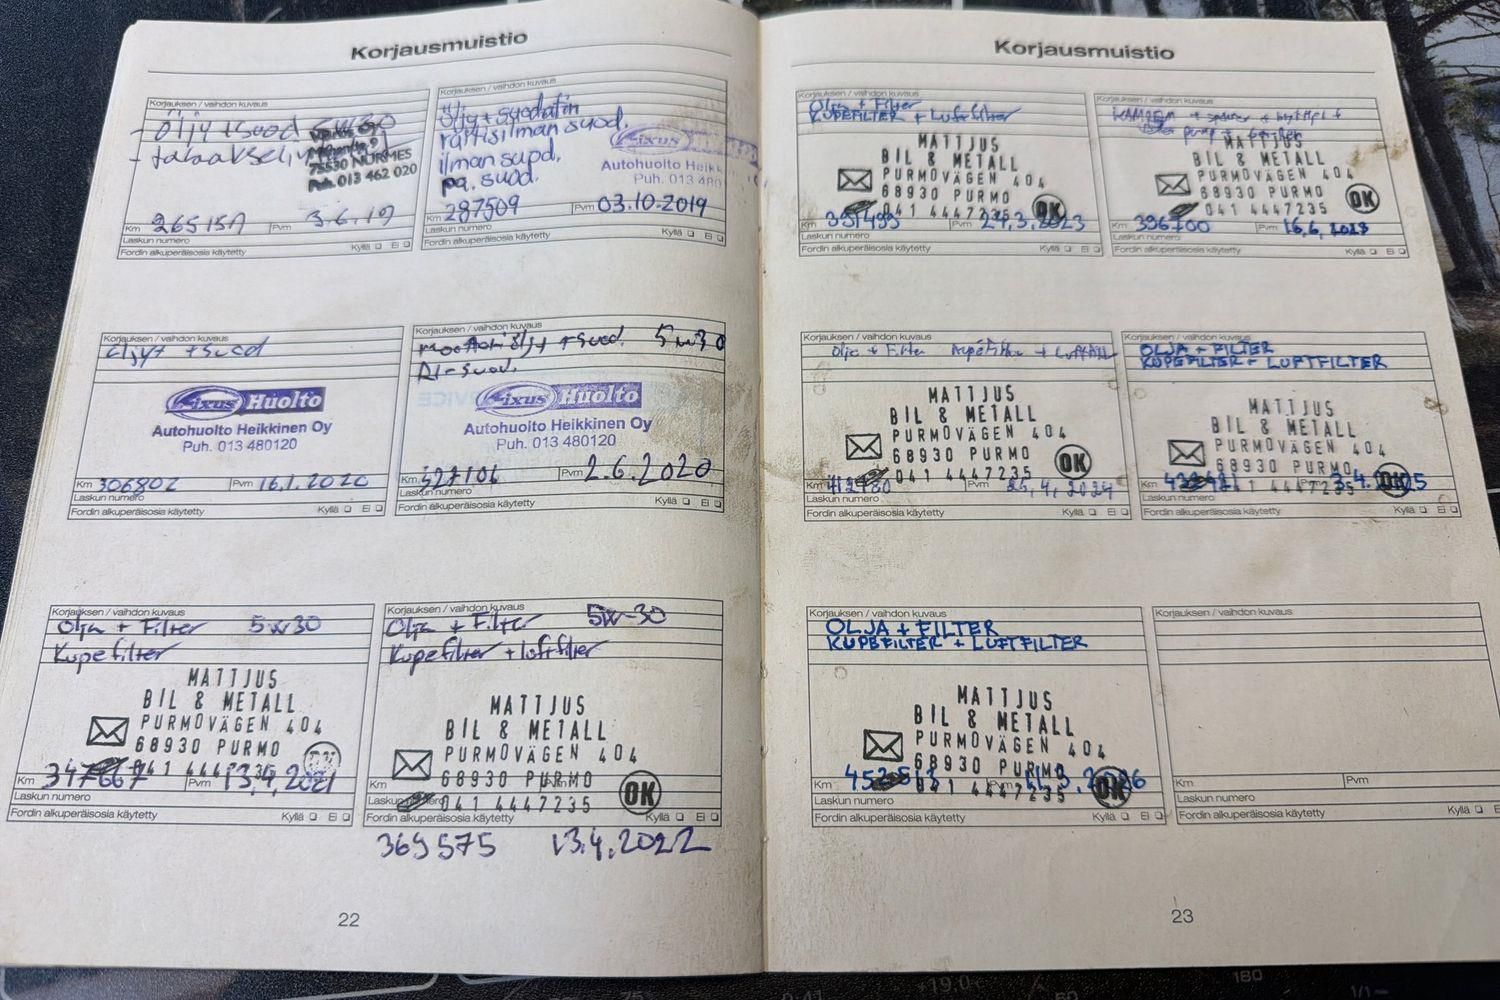 Korjausmuistio
Korjauksen / vaihdon kuvaus
- Öljy + suod 5W30
75530 NURMES
Puh. 013 462 020
Km 265151 Pvm 3.6.19
Laskun numero
Fordin alkuperäisosia käytetty Kyllä Ei
Korjauksen / vaihdon kuvaus
Öljy + suodatin
raitisilman suod.
ilman suod.
pa. suod.
Fixus
Autohuolto Heikk
Puh. 013 480
Km 287509 Pvm 03.10.2019
Laskun numero
Fordin alkuperäisosia käytetty Kyllä Ei
Korjauksen / vaihdon kuvaus
Öljyt + suod
Fixus Huolto
Autohuolto Heikkinen Oy
Puh. 013 480120
Km 306802 Pvm 16.1.2020
Laskun numero
Fordin alkuperäisosia käytetty Kyllä Ei
Korjauksen / vaihdon kuvaus
moottoriöljyt + suod. 5w30
RI-suod.
Fixus Huolto
Autohuolto Heikkinen Oy
Puh. 013 480120
Km 327106 Pvm 2.6.2020
Laskun numero
Fordin alkuperäisosia käytetty Kyllä Ei
Korjauksen / vaihdon kuvaus
Olja + Filter 5w30
Kupefilter
MATTJUS
BIL & METALL
PURMOVÄGEN 404
68930 PURMO
Km 347667 Pvm 13.4.2021
Laskun numero
Fordin alkuperäisosia käytetty Kyllä Ei
Korjauksen / vaihdon kuvaus
Olja + Filter 5w-30
Kupefilter + luftfilter
MATTJUS
BIL & METALL
PURMOVÄGEN 404
68930 PURMO
041 4447235 OK
Km Pvm
Laskun numero
Fordin alkuperäisosia käytetty Kyllä Ei
369575 13.4.2022
22
Korjausmuistio
Korjauksen / vaihdon kuvaus
Olja + Filter
KUPEFILTER + Luftfilter
MATTJUS
BIL & METALL
PURMOVÄGEN 404
68930 PURMO
041 4447235 OK
Km Pvm 27.3.2023
Laskun numero
Fordin alkuperäisosia käytetty Kyllä Ei
Korjauksen / vaihdon kuvaus
MATTJUS
BIL & METALL
PURMOVÄGEN 404
68930 PURMO
041 4447235 OK
Km 396700 Pvm 16.6.2023
Laskun numero
Fordin alkuperäisosia käytetty Kyllä Ei
Korjauksen / vaihdon kuvaus
Olja + Filter Kupefilter + Luftfilter
MATTJUS
BIL & METALL
PURMOVÄGEN 404
68930 PURMO
041 4447235 OK
Km Pvm 25.4.2024
Laskun numero
Fordin alkuperäisosia käytetty Kyllä Ei
Korjauksen / vaihdon kuvaus
OLJA + FILTER
KUPEFILTER + LUFTFILTER
MATTJUS
BIL & METALL
PURMOVÄGEN 404
68930 PURMO
041 4447235 OK
Km Pvm 3.4.2025
Laskun numero
Fordin alkuperäisosia käytetty Kyllä Ei
Korjauksen / vaihdon kuvaus
OLJA + FILTER
KUPEFILTER + LUFTFILTER
MATTJUS
BIL & METALL
PURMOVÄGEN 404
68930 PURMO
041 4447235 OK
Km Pvm
Laskun numero
Fordin alkuperäisosia käytetty Kyllä Ei
Korjauksen / vaihdon kuvaus
Km Pvm
Laskun numero
Fordin alkuperäisosia käytetty Kyllä Ei
23
180